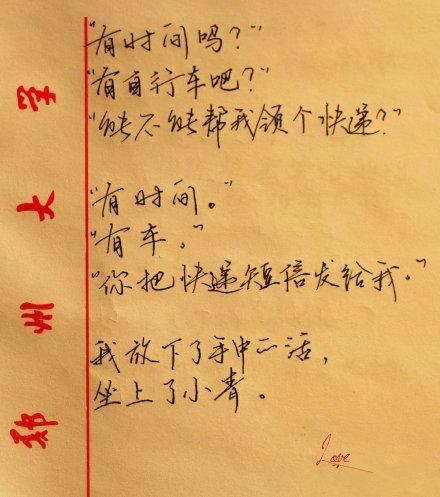 "有时间吗？"
"有自行车吧？"
"能不能帮我领个快递？"
"有时间。"
"有车。"
"你把快递短信发给我。"
我放下了手中的活，
坐上了小青。
郑州大学
Love